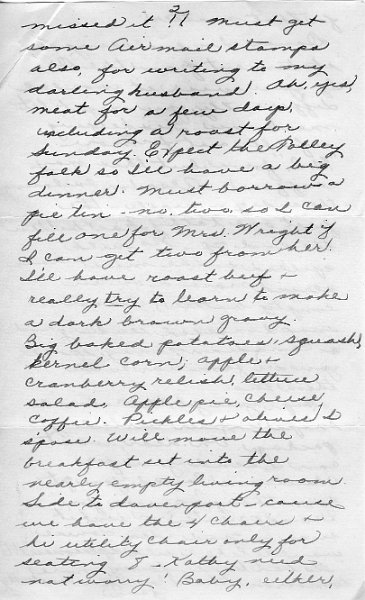 2
missed it !! must get
some Airmail stamps
also, for writing to my
darling husband. Oh, yes,
meat for a few days,
including a roast for
Sunday. Expect the Valley
folk so I'll have a big
dinner. Must borrow a
pie tin - no, two, so I can
fill one for Mrs. Wright if
I can get two from her.
I'll have roast beef +
really try to learn to make
a dark brown gravy.
Big baked potatoes, squash,
kernel corn, apple +
cranberry relish, lettuce
salad, Apple pie, cheese,
coffie. Pickles + olives, I
spose. Will move the
breakfast set into the
nearly empty living room
side to davenport - cause
we have the 4 chairs +
hi utility chair only for
seating 8 - Kathy need
not worry! Baby, either,